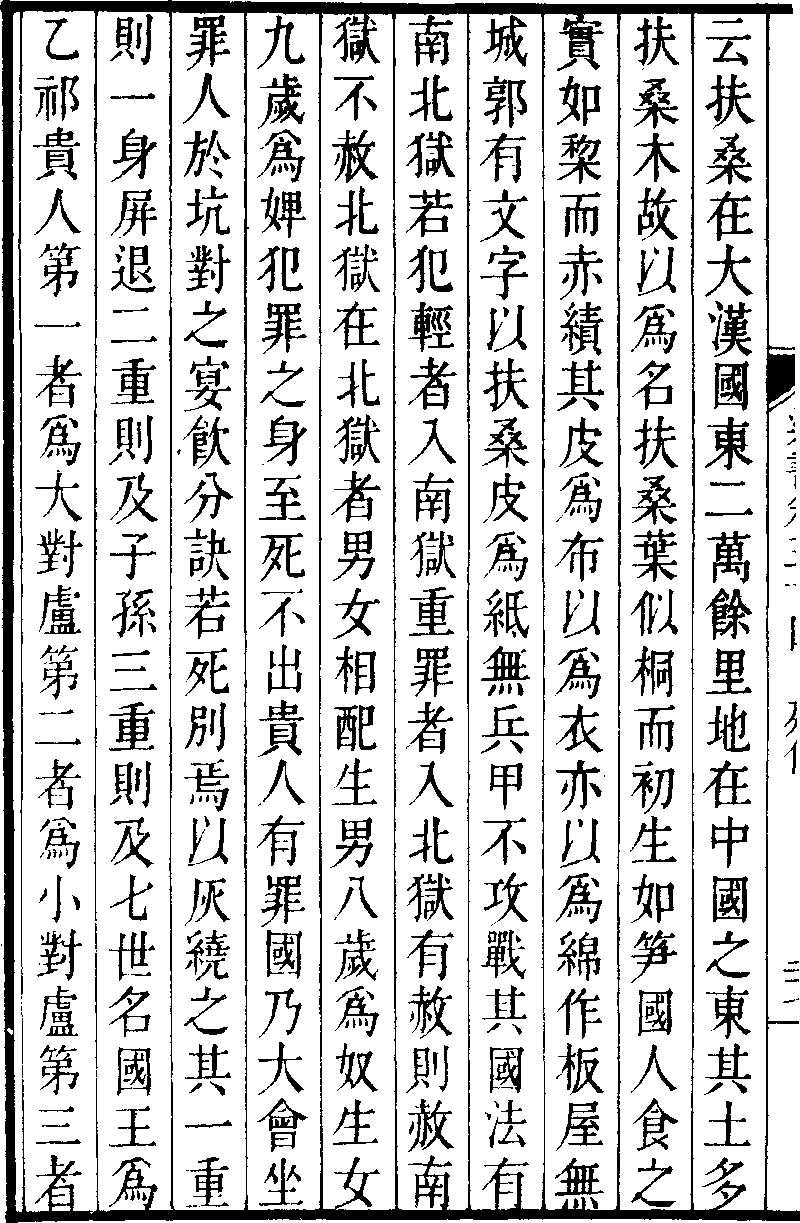 云扶桑在大漢國東二萬餘里地在中國之東其土多
扶桑木故以為名扶桑葉似桐而初生如筍國人食之
實如棃而赤績其皮為布以為衣亦以為綿作板屋無
城郭有文字以扶桑皮為紙無兵甲不攻戰其國法有
南北獄若犯輕者入南獄重罪者入北獄有赦則赦南
獄不赦北獄在北獄者男女相配生男八歲為奴生女
九歲為婢犯罪之身至死不出貴人有罪國乃大會坐
罪人於坑對之宴飲分訣若死別焉以灰繞之其一重
則一身屏退二重則及子孫三重則及七世名國王為
乙祁貴人第一者為大對盧第二者為小對盧第三者